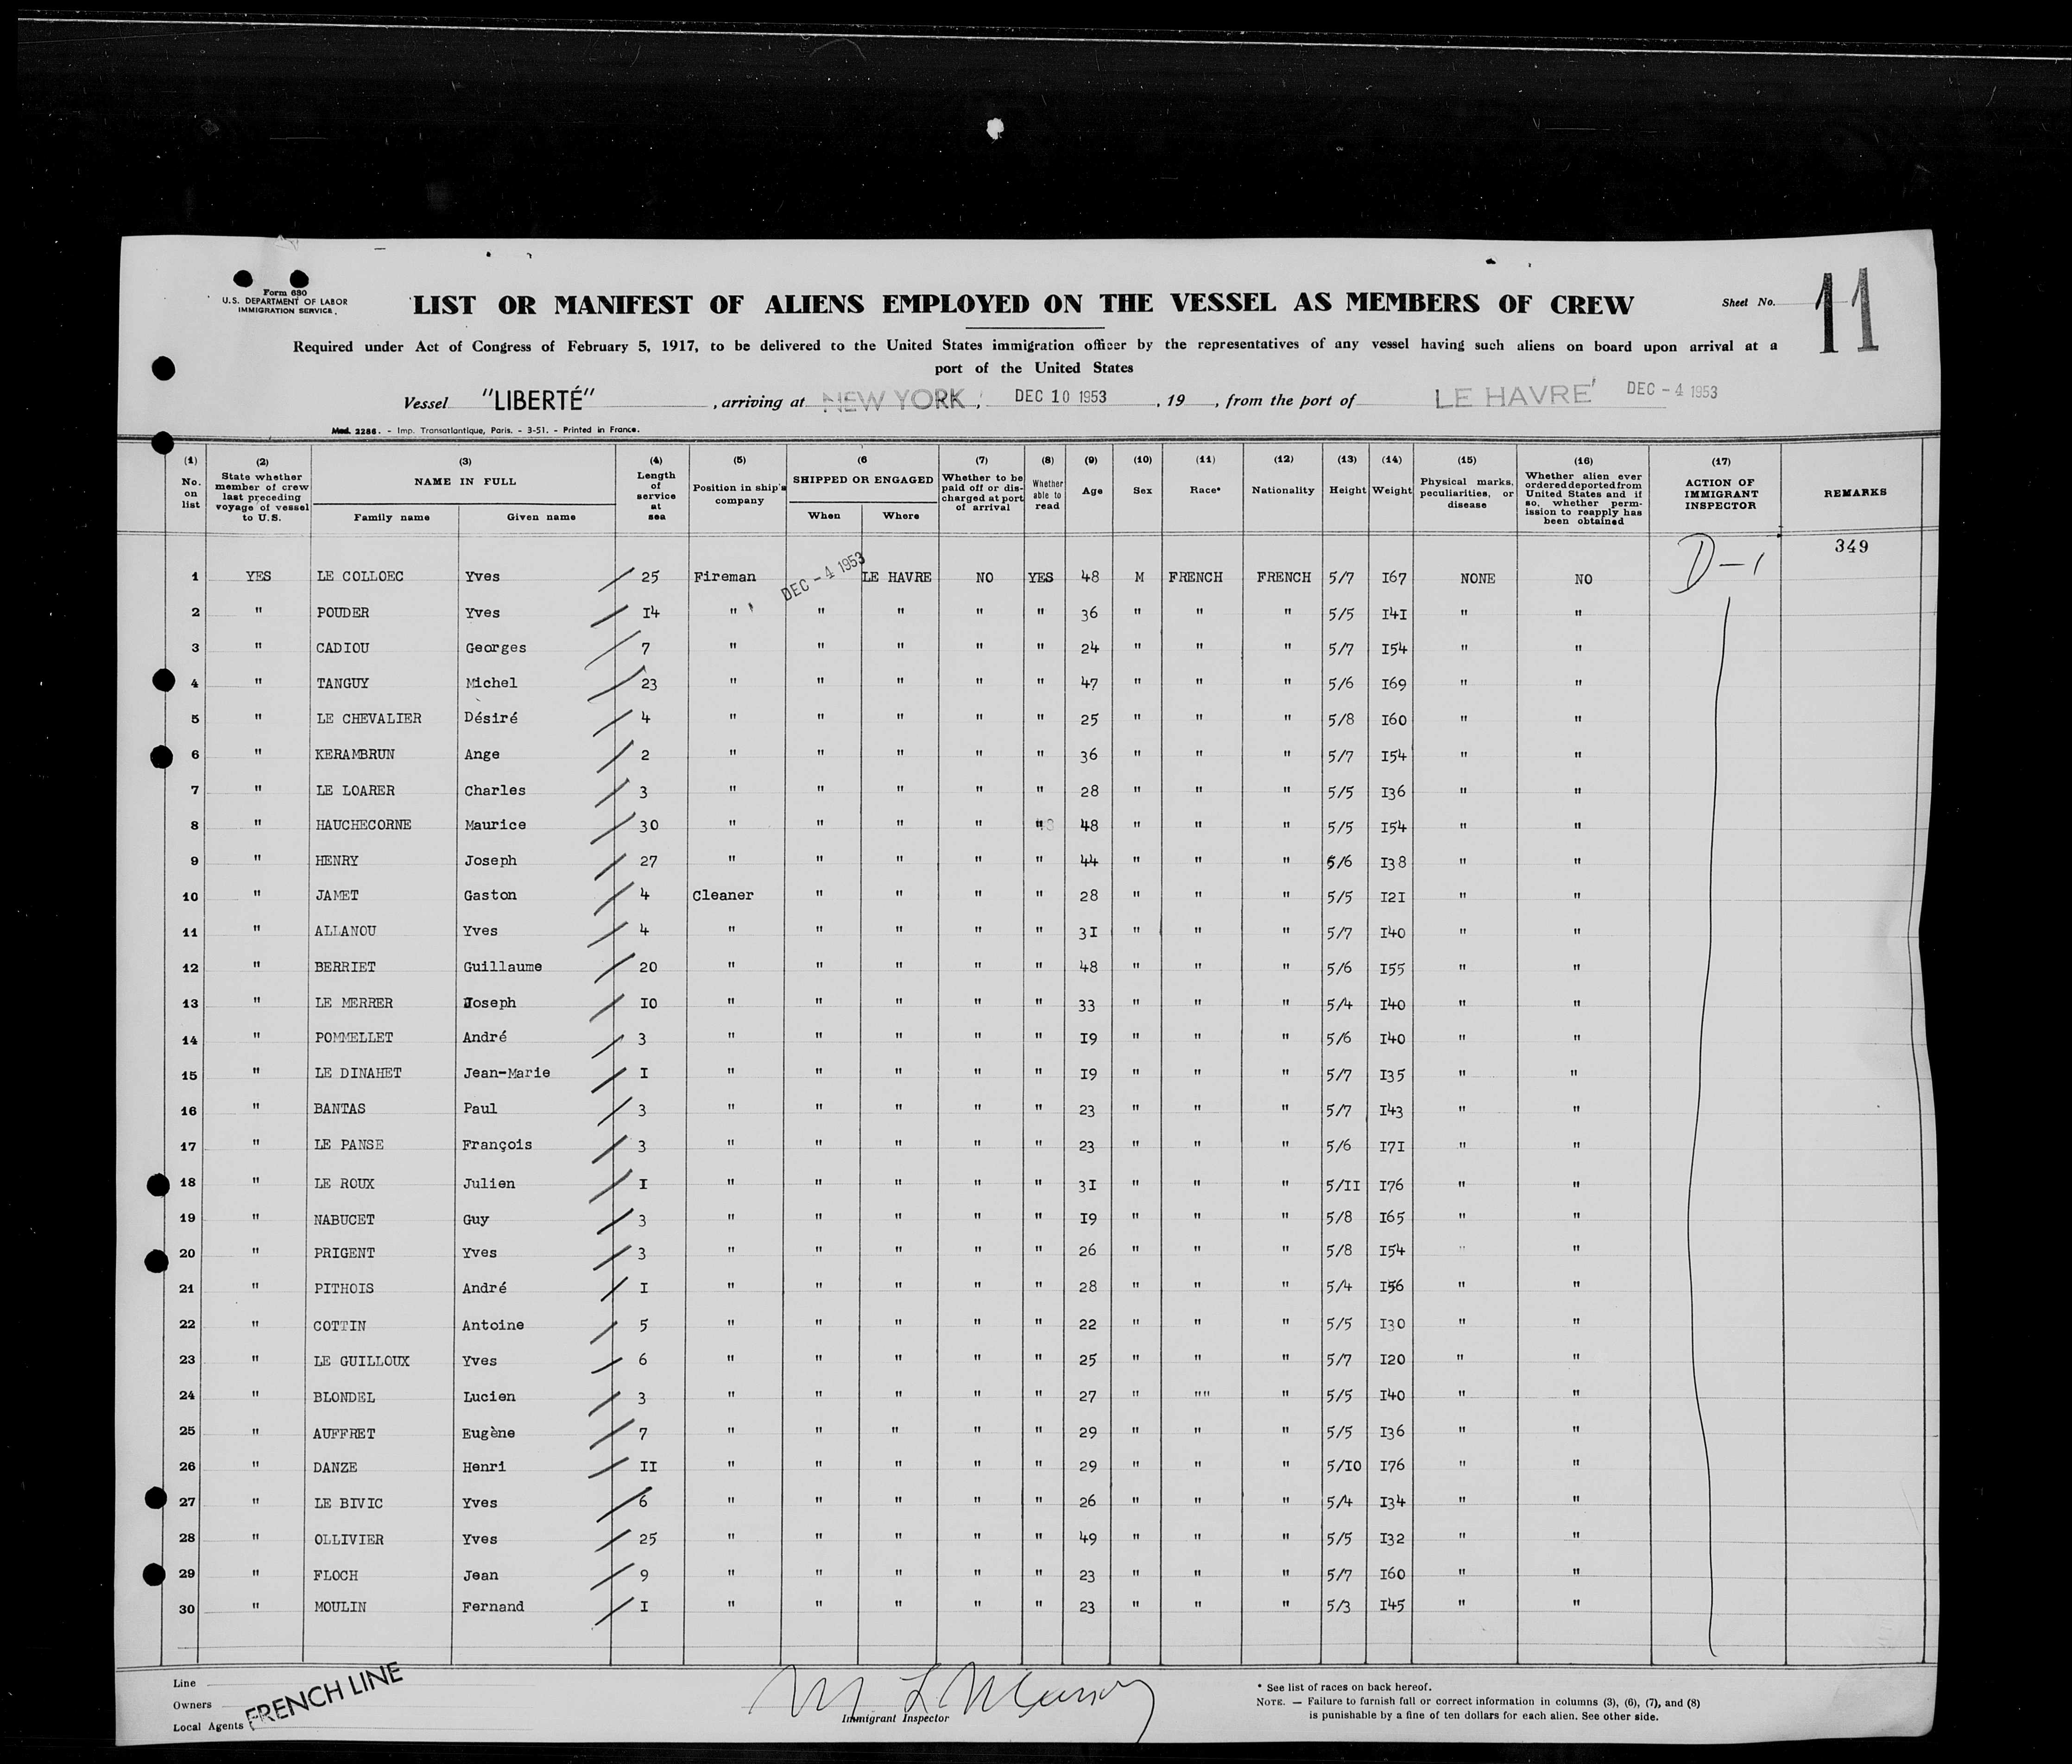 Form 680
U.S. DEPARTMENT OF LABOR
IMMIGRATION SERVICE.
LIST OR MANIFEST OF ALIENS EMPLOYED ON THE VESSEL AS MEMBERS OF CREW
Sheet No. 11
Required under Act of Congress of February 5, 1917, to be delivered to the United States immigration officer by the representatives of any vessel having such aliens on board upon arrival at a
port of the United States
Vessel "LIBERTÉ", arriving at NEW YORK, DEC 10 1953, 19 , from the port of LE HAVRE DEC - 4 1953
Mod. 2286. - Imp. Transatlantique, Paris. - 3-51. - Printed in France.
(1) No. on list (2) State whether member of crew last preceding voyage of vessel to U.S. (3) NAME IN FULL Family name Given name (4) Length of service at sea (5) Position in ship's company (6 SHIPPED OR ENGAGED When Where (7) Whether to be paid off or discharged at port of arrival (8) Whether able to read (9) Age (10) Sex (11) Race* (12) Nationality (13) Height (14) Weight (15) Physical marks, peculiarities, or disease (16) Whether alien ever ordered deported from United States and if so, whether permission to reapply has been obtained (17) ACTION OF IMMIGRANT INSPECTOR REMARKS
349
1 YES LE COLLOEC Yves 25 Fireman DEC - 4 1953 LE HAVRE NO YES 48 M FRENCH FRENCH 5/7 I67 NONE NO D-1
2 " POUDER Yves I4 " " " " " 36 " " " 5/5 I4I " "
3 " CADIOU Georges 7 " " " " " 24 " " " 5/7 I54 " "
4 " TANGUY Michel 23 " " " " " 47 " " " 5/6 I69 " "
5 " LE CHEVALIER Désiré 4 " " " " " 25 " " " 5/8 I60 " "
6 " KERAMBRUN Ange 2 " " " " " 36 " " " 5/7 I54 " "
7 " LE LOARER Charles 3 " " " " " 28 " " " 5/5 I36 " "
8 " HAUCHECORNE Maurice 30 " " " " " 48 " " " 5/5 I54 " "
9 " HENRY Joseph 27 " " " " " 44 " " " 5/6 I38 " "
10 " JAMET Gaston 4 Cleaner " " " " 28 " " " 5/5 I2I " "
11 " ALLANOU Yves 4 " " " " " 3I " " " 5/7 I40 " "
12 " BERRIET Guillaume 20 " " " " " 48 " " " 5/6 I55 " "
13 " LE MERRER Joseph I0 " " " " " 33 " " " 5/4 I40 " "
14 " POMMELLET André 3 " " " " " I9 " " " 5/6 I40 " "
15 " LE DINAHET Jean-Marie I " " " " " I9 " " " 5/7 I35 " "
16 " BANTAS Paul 3 " " " " " 23 " " " 5/7 I43 " "
17 " LE PANSE François 3 " " " " " 23 " " " 5/6 I7I " "
18 " LE ROUX Julien I " " " " " 3I " " " 5/II I76 " "
19 " NABUCET Guy 3 " " " " " I9 " " " 5/8 I65 " "
20 " PRIGENT Yves 3 " " " " " 26 " " " 5/8 I54 " "
21 " PITHOIS André I " " " " " 28 " " " 5/4 I56 " "
22 " COTTIN Antoine 5 " " " " " 22 " " " 5/5 I30 " "
23 " LE GUILLOUX Yves 6 " " " " " 25 " " " 5/7 I20 " "
24 " BLONDEL Lucien 3 " " " " " 27 " "" " 5/5 I40 " "
25 " AUFFRET Eugène 7 " " " " " 29 " " " 5/5 I36 " "
26 " DANZE Henri II " " " " " 29 " " " 5/I0 I76 " "
27 " LE BIVIC Yves 6 " " " " " 26 " " " 5/4 I34 " "
28 " OLLIVIER Yves 25 " " " " " 49 " " " 5/5 I32 " "
29 " FLOCH Jean 9 " " " " " 23 " " " 5/7 I60 " "
30 " MOULIN Fernand I " " " " " 23 " " " 5/3 I45 " "
Line
Owners
Local Agents
FRENCH LINE
Immigrant Inspector
* See list of races on back hereof.
NOTE. — Failure to furnish full or correct information in columns (3), (6), (7), and (8)
is punishable by a fine of ten dollars for each alien. See other side.